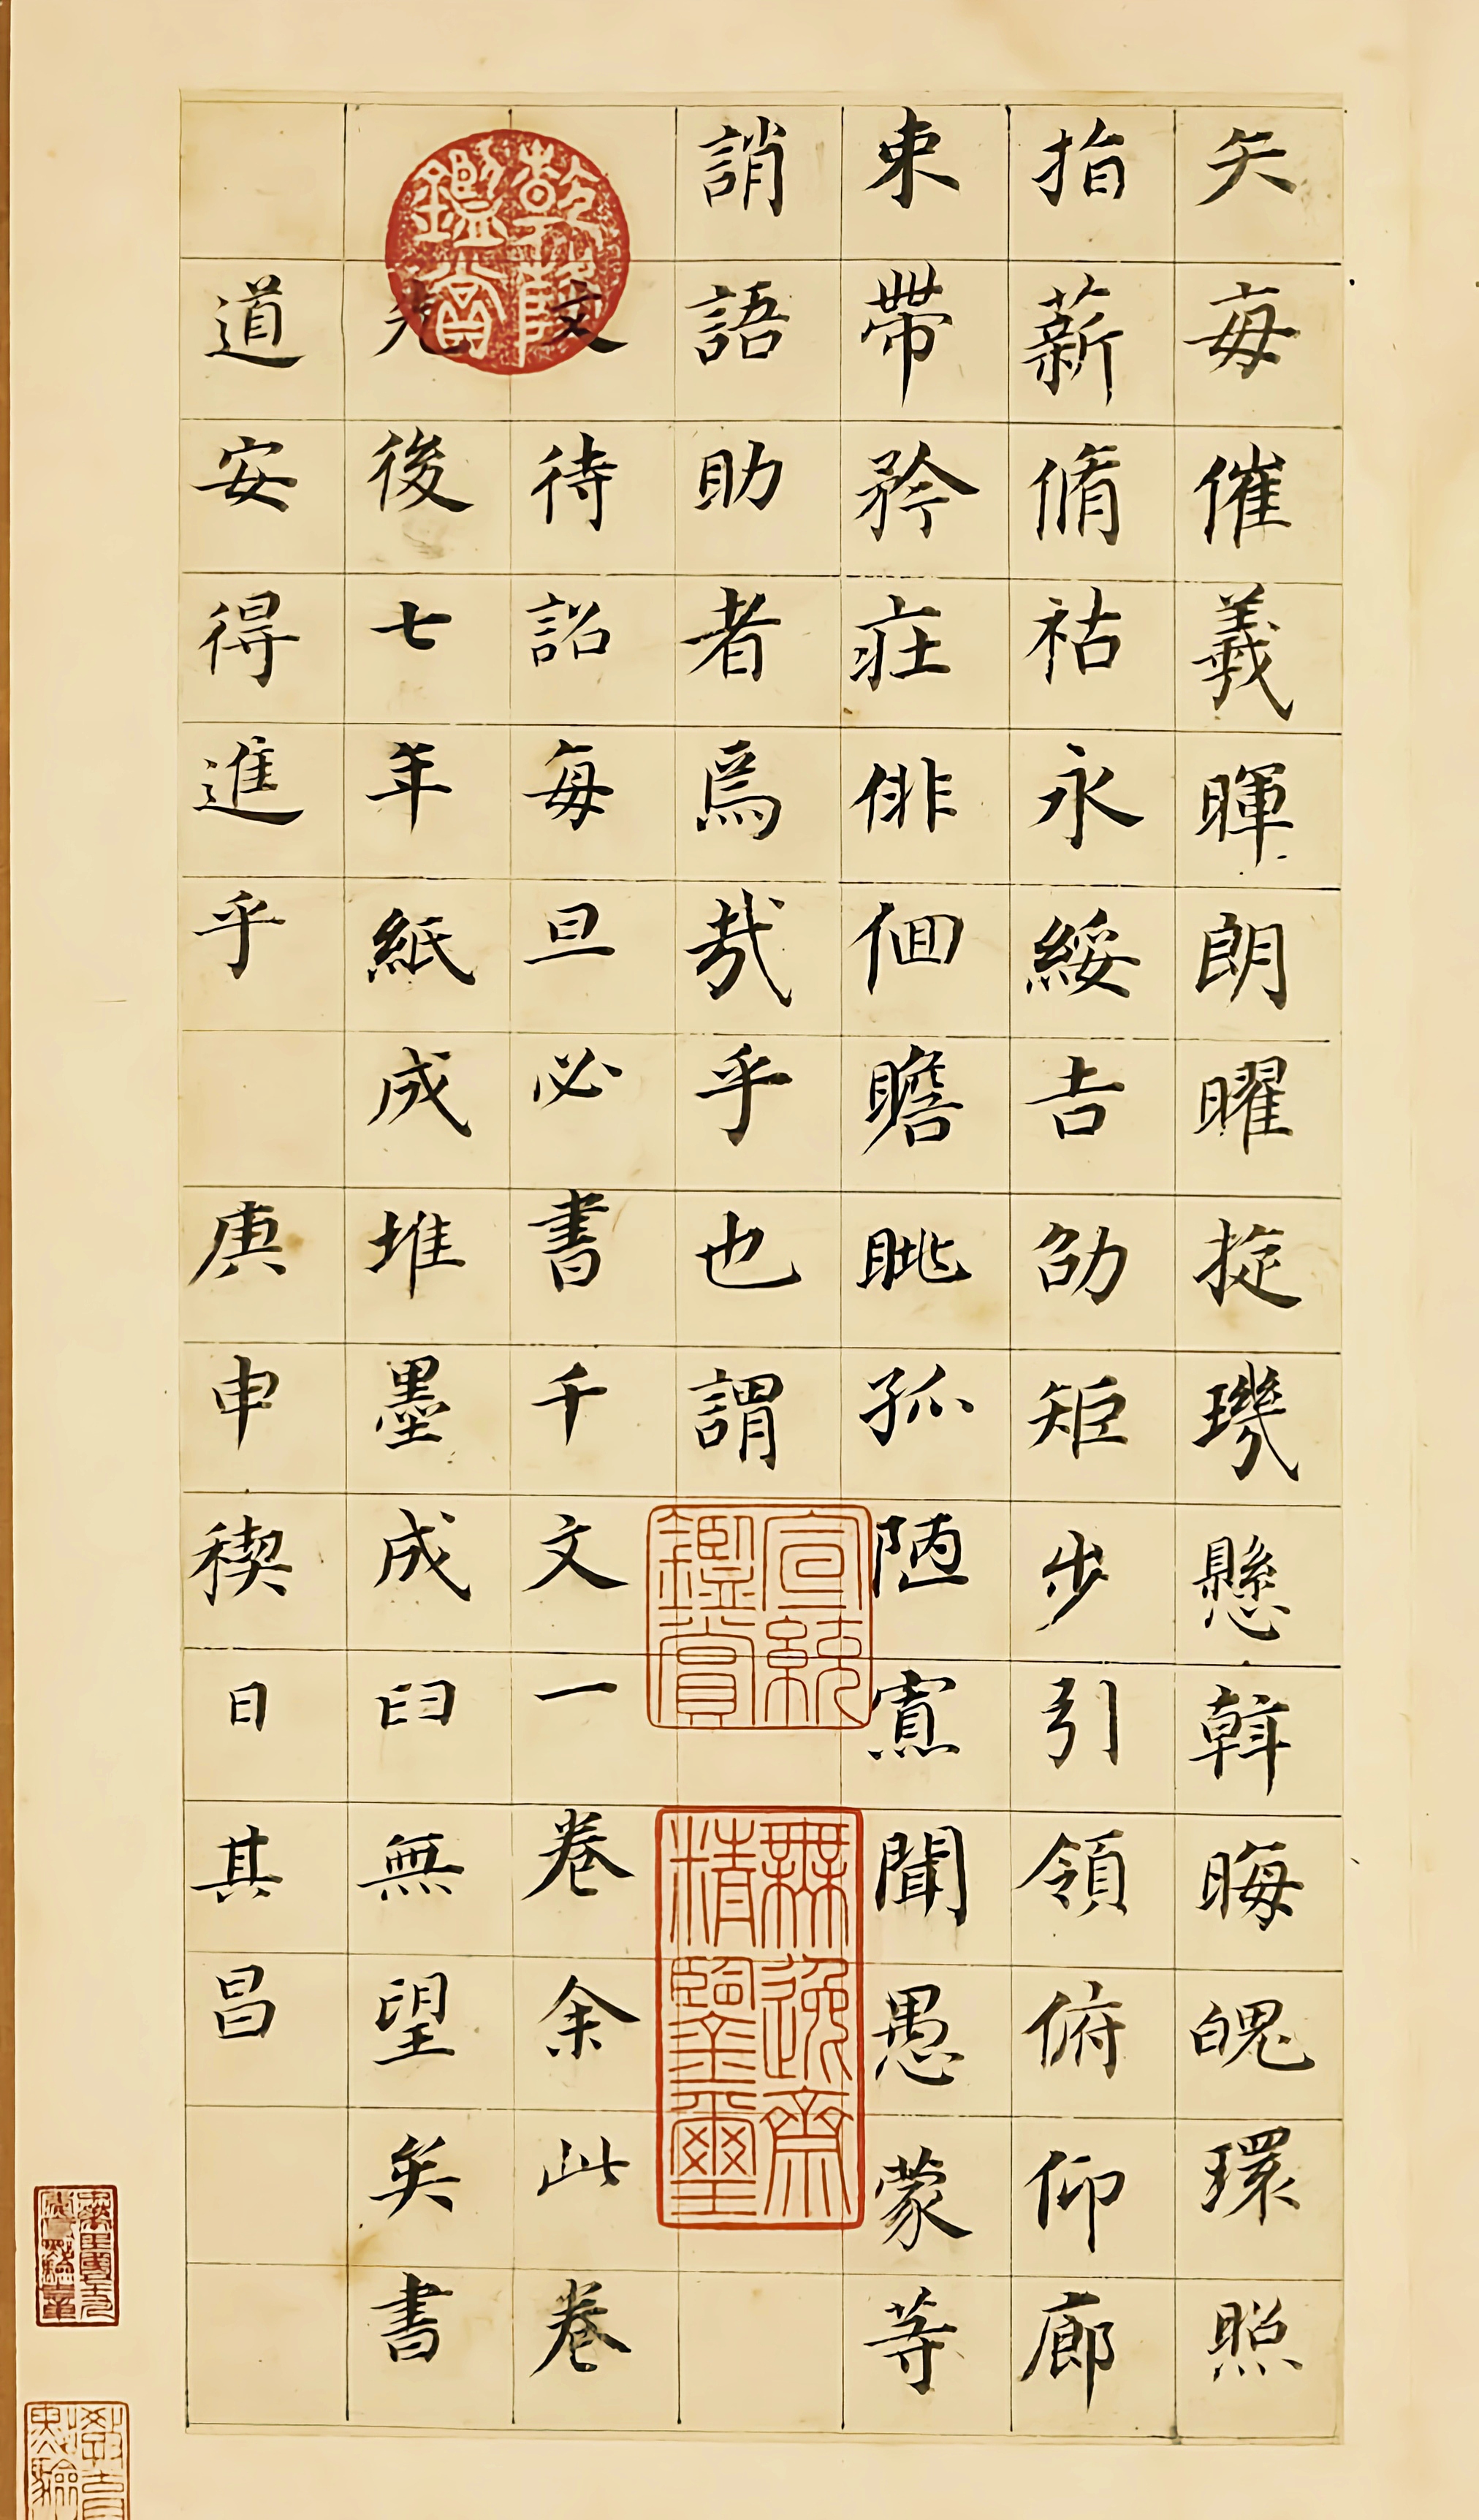 矢每催羲暉朗曜旋璣懸斡晦魄環照
指薪脩祜永綏吉劭矩步引領俯仰廊
束帶矜莊俳佪瞻眺孤陋寡聞愚蒙等
誚語助者焉哉乎也謂
文待詔每旦必書千文一卷余此卷
先後七年紙成堆墨成臼無望矣書
道安得進乎 庚申稧日其昌
乾隆鑑賞
宣統鑑賞
無逸齋精鑒璽